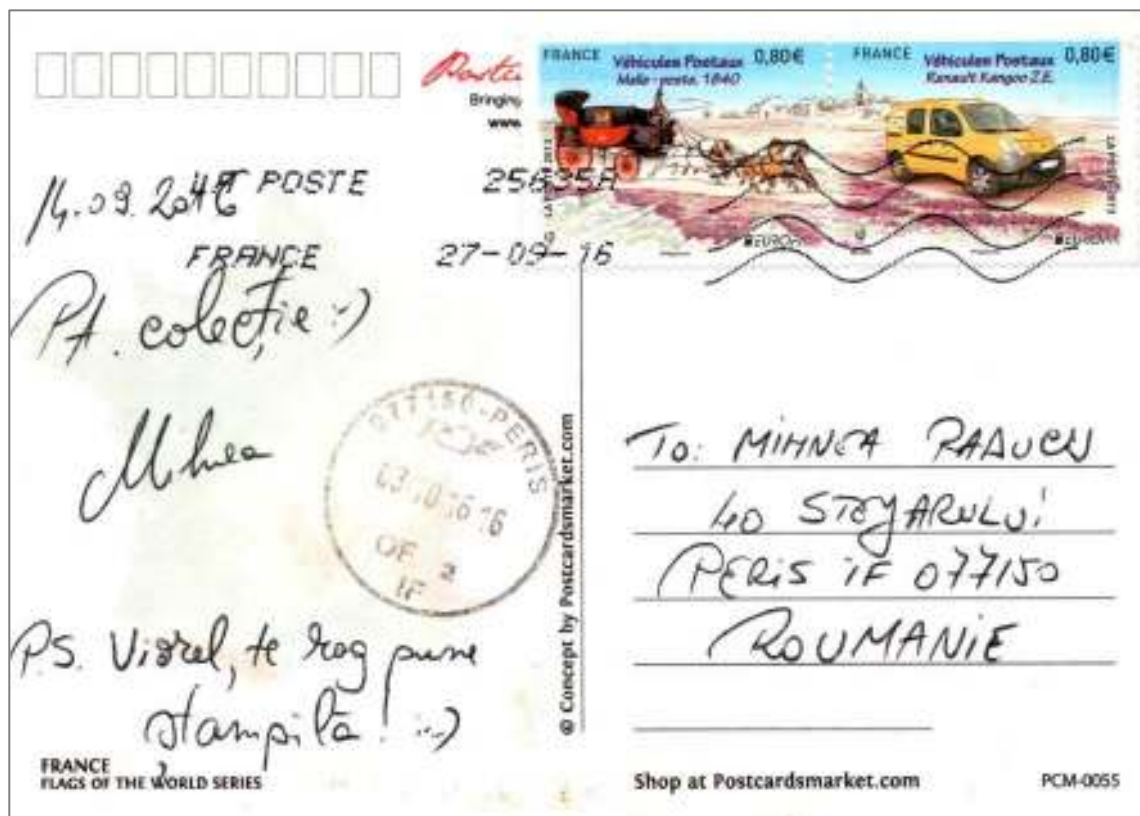 FRANCE Véhicules Postaux 0,80€
Malle-poste, 1840
FRANCE Véhicules Postaux 0,80€
Renault Kangoo Z.E.
Bringing
www.
EUROPA
EUROPA
LA POSTE 25635A
FRANCE 27-09-16
14.09.2016
PT. colecție :)
Mihnea
077150-PERIS
03 10 16 16
OF 2
IF
P.S. Viorel, te rog pune
ștampilă! :)
FRANCE
FLAGS OF THE WORLD SERIES
© Concept by Postcardsmarket.com
To: MIHNEA RADUCU
40 STEJARULUI
PERIS IF 077150
ROUMANIE
Shop at Postcardsmarket.com
PCM-0055